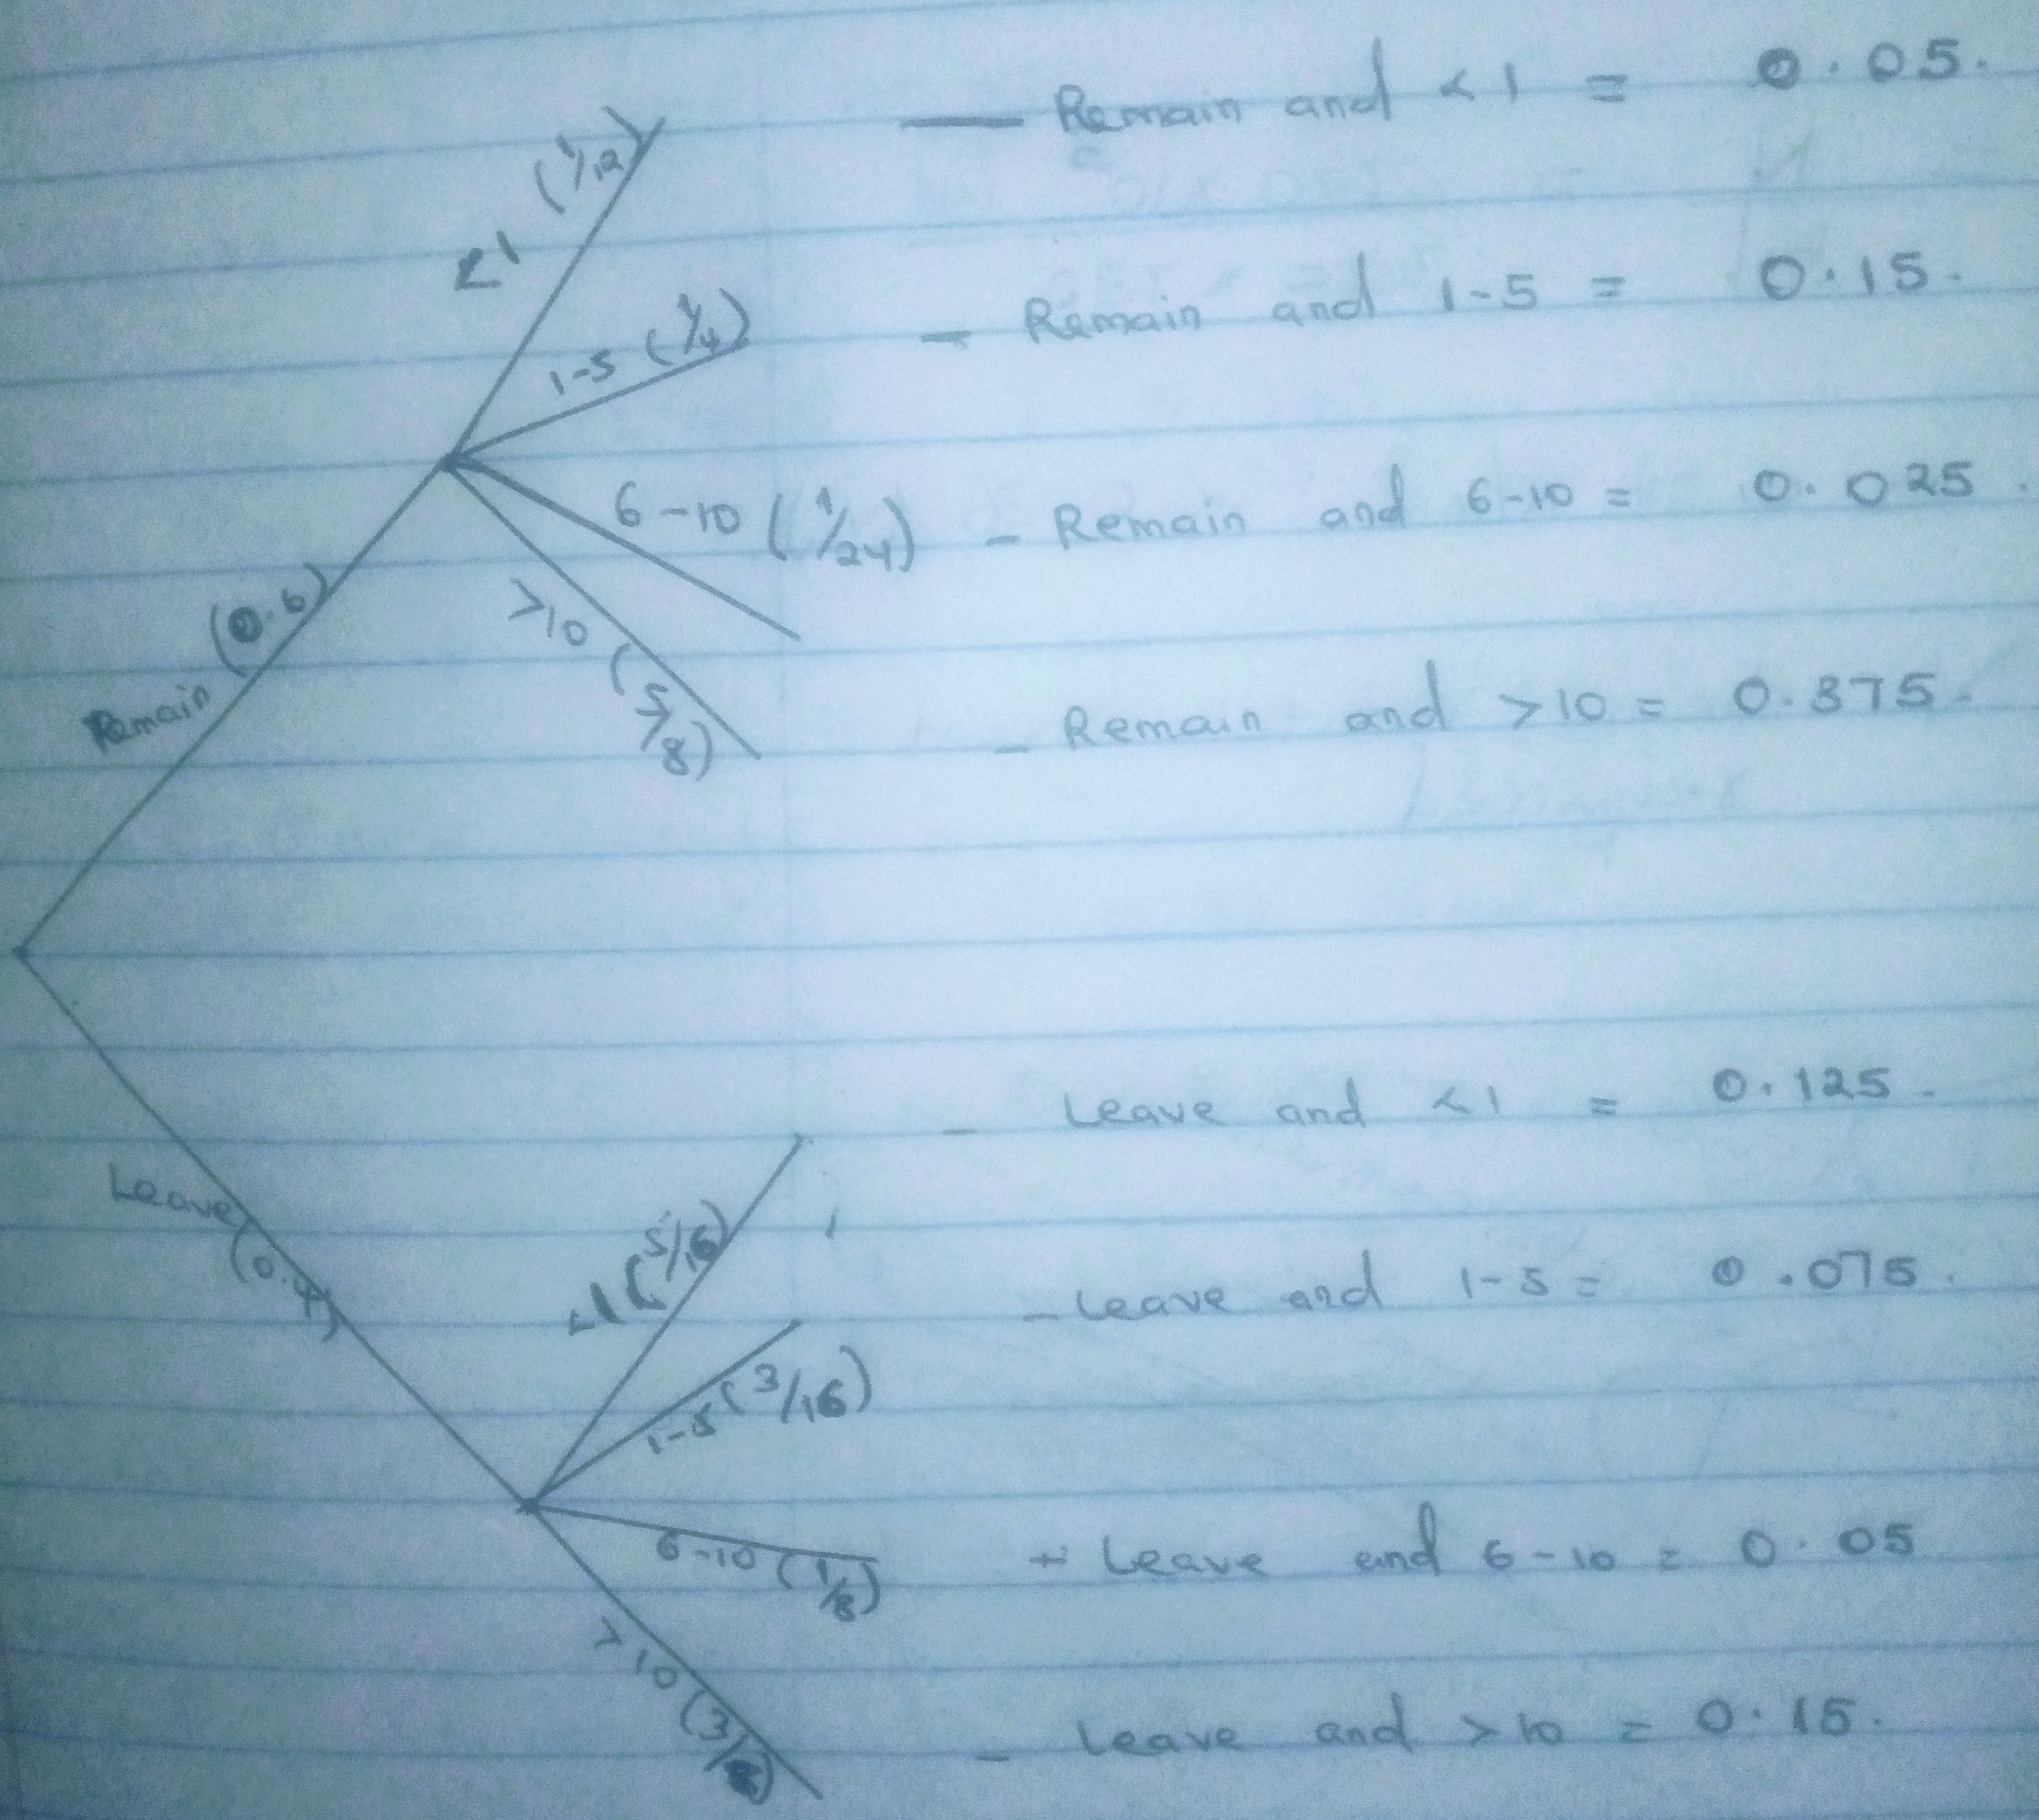 <1 (1/12) — Remain and <1 = 0.05.
1-5 (1/4) - Remain and 1-5 = 0.15.
6-10 (1/24) - Remain and 6-10 = 0.025.
>10 (5/8) - Remain and >10 = 0.375.
Remain (0.6)
Leave (0.4)
<1 (5/16) - Leave and <1 = 0.125.
1-5 (3/16) - Leave and 1-5 = 0.075.
6-10 (1/8) - Leave and 6-10 = 0.05
>10 (3/8) - Leave and >10 = 0.15.